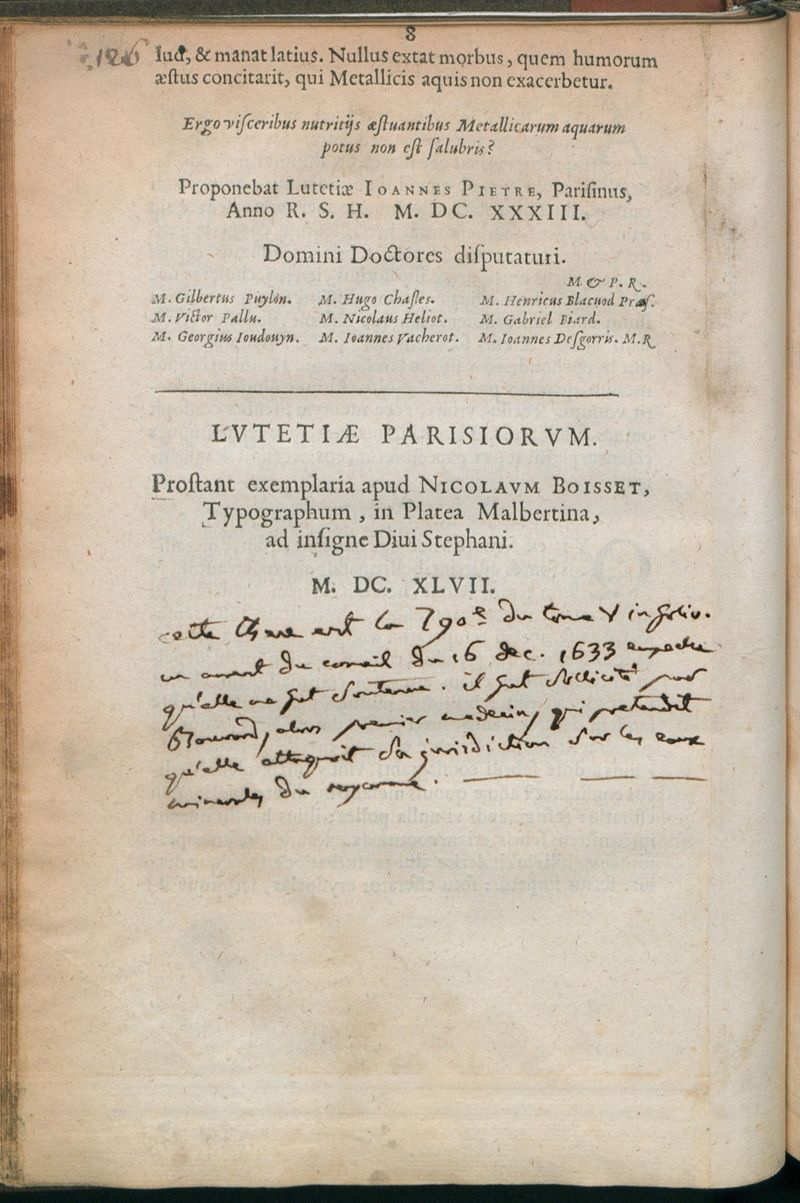 8
126 luct, & manat latius. Nullus extat morbus, quem humorum
æstus concitarit, qui Metallicis aquis non exacerbetur.
Ergo visceribus nutritijs æstuantibus Metallicarum aquarum
potus non est salubris?
Proponebat Lutetiæ IOANNES PIETRE, Parisinus,
Anno R. S. H. M. DC. XXXIII.
Domini Doctores disputaturi.
M. & P. R.
M. Gilbertus Puylon. M. Hugo Chasles. M. Henricus Blacuod Præs.
M. Victor Pallu. M. Nicolaus Heliot. M. Gabriel Biard.
M. Georgius Ioudouyn. M. Ioannes Vacherot. M. Ioannes Desgorris. M.R
LVTETIÆ PARISIORVM.
Prostant exemplaria apud NICOLAVM BOISSET,
Typographum, in Platea Malbertina,
ad insigne Diui Stephani.
M. DC. XLVII.
cette these est la 790e du tome V in folio.
un arrest du conseil du 16 dec. 1633 empecha
qu'elle ne fut soutenue. il fut sollicité par
Bouvard, alors premier medecin, qui pretendit
qu'elle attaquoit sa jurisdiction sur les eaux
minerales du royaume.